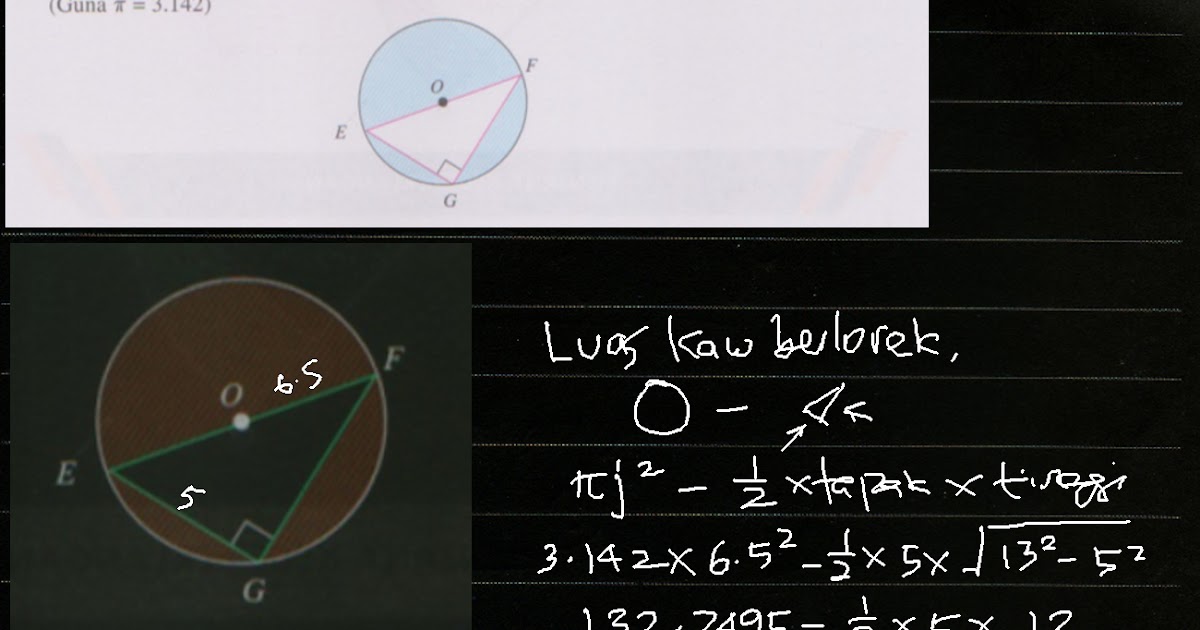 (Guna π = 3.142)
F
O
E
G
F
6.5
O
E
5
G
Luas kaw berlorek,
O −
πj² − 1/2 × tapak × tinggi
3.142 × 6.5² − 1/2 × 5 × √13² − 5²
132.7495 − 1/2 × 5 × 12